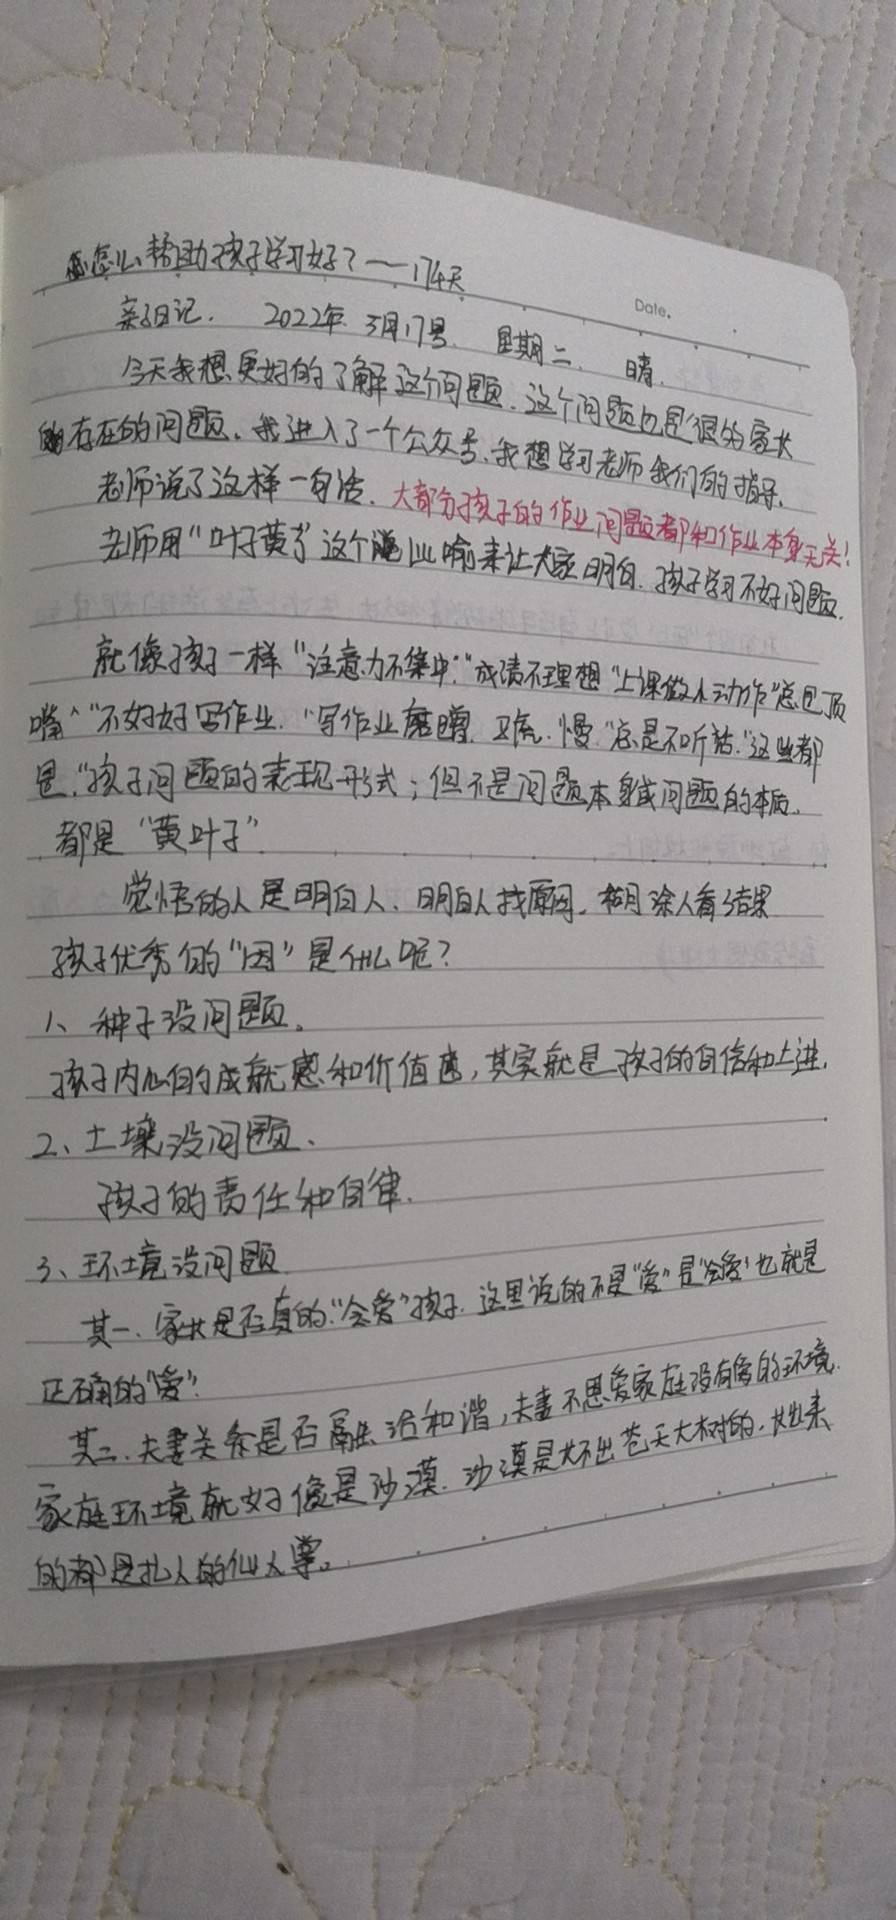 怎么帮助孩子学习好?——174天
Date.
亲子日记. 2022年 3月17号. 星期二. 晴.
今天我想更好的了解这个问题. 这个问题也是很多家长
存在的问题。我进入了一个公众号、我想学习老师我们的指导.
老师说了这样一句话. 大部分孩子的作业问题都和作业本身无关!
老师用“叶子黄了”这个比喻来让大家明白. 孩子学习不好问题.
就像孩子一样“注意力不集中”“成绩不理想“上课做小动作”总是顶
嘴”“不好好写作业.“写作业磨蹭. 慢.“总是不听话.”这些都
是.“孩子问题的表现形式;但不是问题本身或问题的本质.
都是“黄叶子”
觉悟的人是明白人. 明白人找原因. 糊涂人看结果
孩子优秀的“因”是什么呢?
1、种子没问题。
孩子内心的成就感和价值感,其实就是孩子的自信和上进.
2、土壤没问题.
孩子的责任和自律.
3、环境没问题
其一、家长是否真的“会爱”孩子. 这里说的不是“爱”是“会爱”也就是
正确的“爱”.
其二、夫妻关系是否融洽和谐,夫妻不恩爱家庭没有爱的环境.
家庭环境就好像是沙漠. 沙漠是长不出苍天大树的. 长出来
的都是扎人的仙人掌。